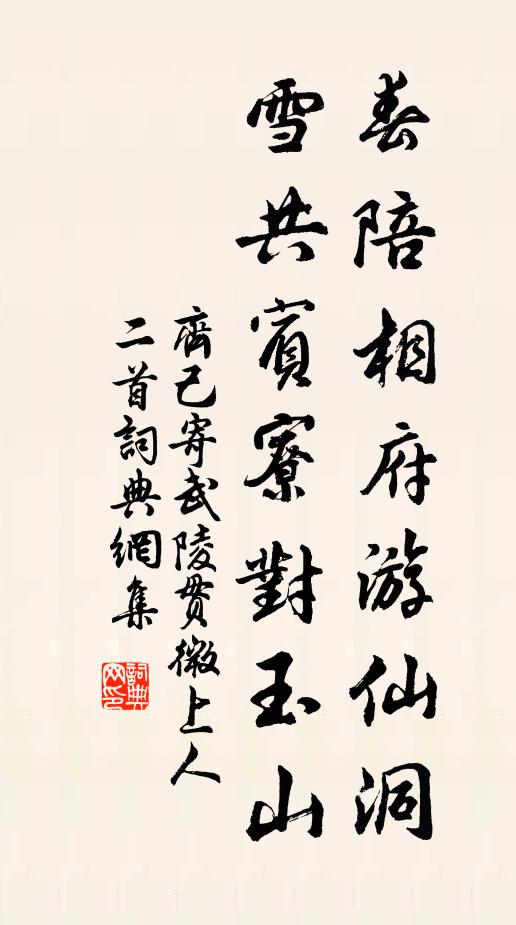 春陪相府游仙洞
雪共賓寮對玉山
齊己寄武陵貫微上人
二首詞典網集
詞典網印